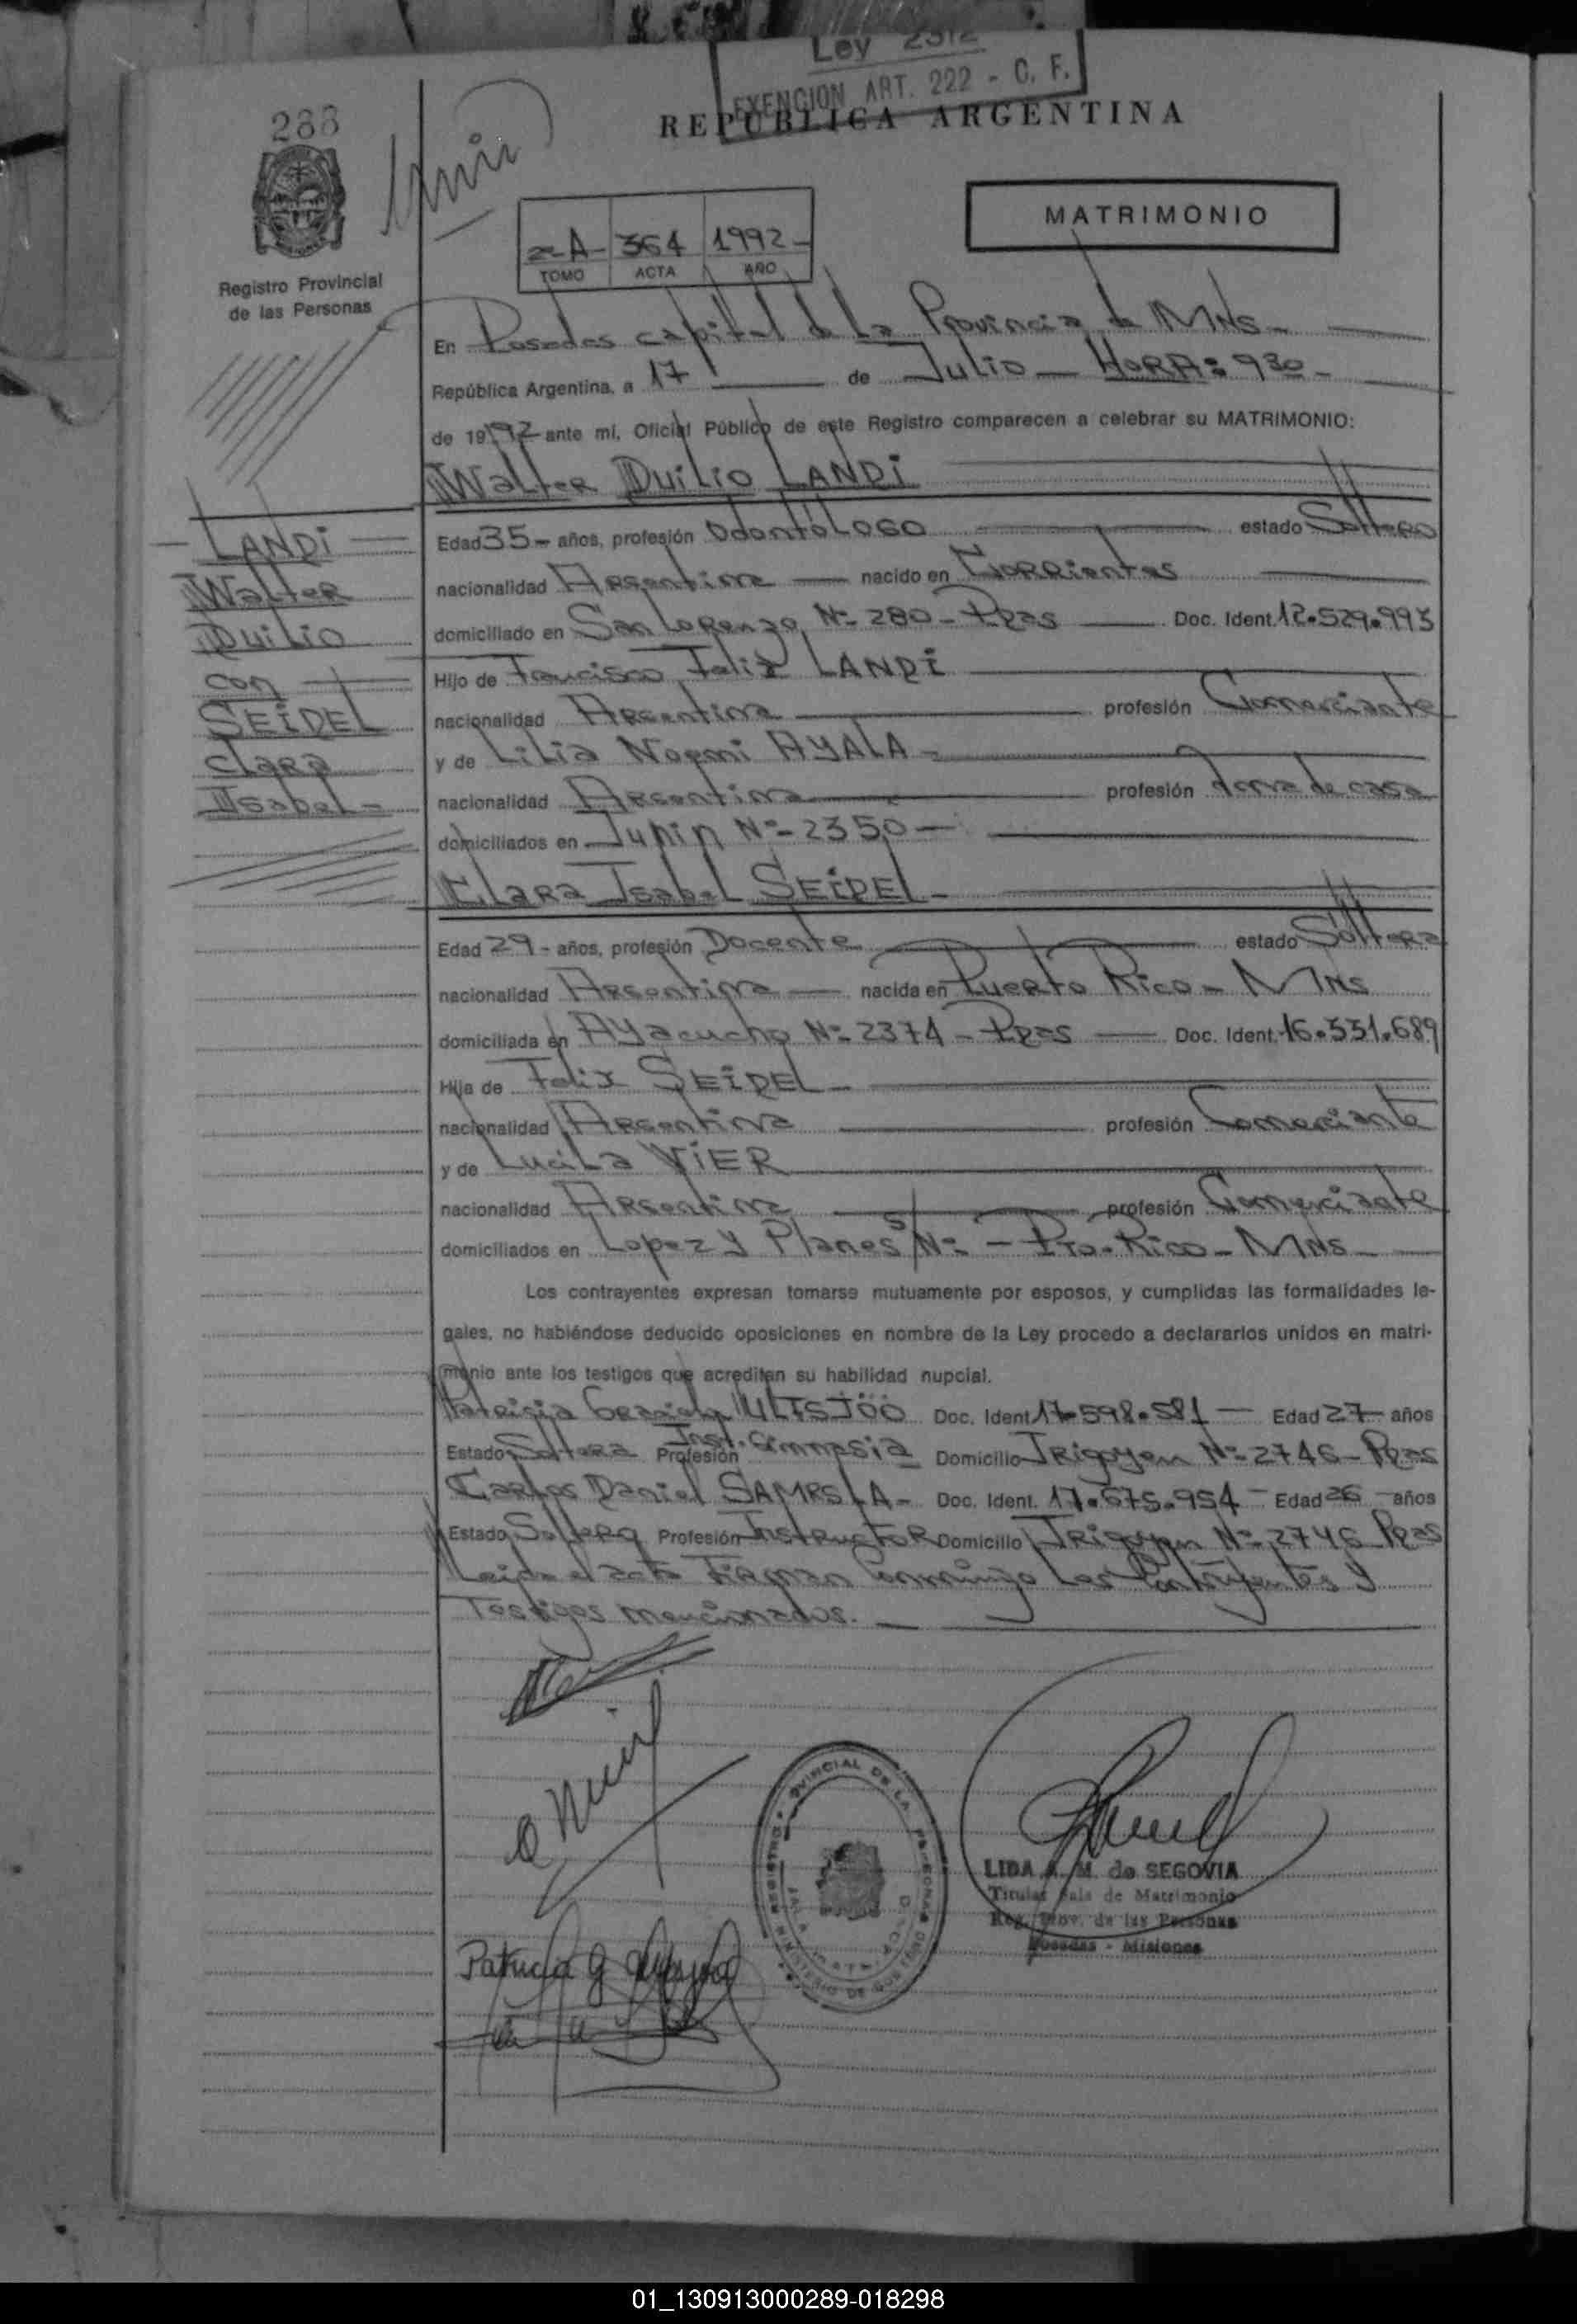 Ley 2312
EXENCION ART. 222 - C. F.
288
REPUBLICA ARGENTINA
MATRIMONIO
2-A- 364 1992-
TOMO ACTA AÑO
Registro Provincial
de las Personas
En Posadas capital de La Provincia de MNS-
República Argentina, a 17 de Julio - HORA: 930-
de 1992 ante mí, Oficial Público de este Registro comparecen a celebrar su MATRIMONIO:
Walter Duilio LANDI
LANDI
Walter
Duilio
con
SEIDEL
Clara
Isabel-
Edad 35- años, profesión Odontólogo estado Soltero
nacionalidad Argentina nacido en Corrientes
domiciliado en San Lorenzo Nº 280- Pdas Doc. Ident. 12.529.993
Hijo de Francisco Felix LANDI
nacionalidad Argentina profesión Comerciante
y de Lilia Noemi AYALA-
nacionalidad Argentina profesión Ama de casa
domiciliados en Junin Nº- 2350-
Clara Isabel SEIDEL-
Edad 29- años, profesión Docente estado Soltera
nacionalidad Argentina nacida en Puerto Rico- MNS
domiciliada en Ayacucho Nº 2374- Pdas Doc. Ident. 16.331.689
Hija de Felix SEIDEL-
nacionalidad Argentina profesión Comerciante
y de Lucila VIER
nacionalidad Argentina profesión Comerciante
domiciliados en Lopez y Planes S/Nº - Pto-Rico- MNS-
Los contrayentes expresan tomarse mutuamente por esposos, y cumplidas las formalidades le-
gales, no habiéndose deducido oposiciones en nombre de la Ley procedo a declararlos unidos en matri-
monio ante los testigos que acreditan su habilidad nupcial.
Patricia Graciela Doc. Ident. 17.598.581- Edad 27 años
Estado Soltera Profesión Inst. Gimnasia Domicilio Irigoyen Nº 2746- Pdas
Carlos Daniel Doc. Ident. 17.675.954- Edad 26 años
Estado Soltero Profesión Instructor Domicilio Irigoyen Nº 2746 Pdas
Leida el acta Firman Conmigo Los Contrayentes y
Testigos mencionados.
Patricia G
REGISTRO PROVINCIAL DE LA
MINISTERIO DE
LIDA A. M. de SEGOVIA
Titular Sala de Matrimonio
Reg. Prov. de las Personas
Posadas - Misiones
01_130913000289-018298